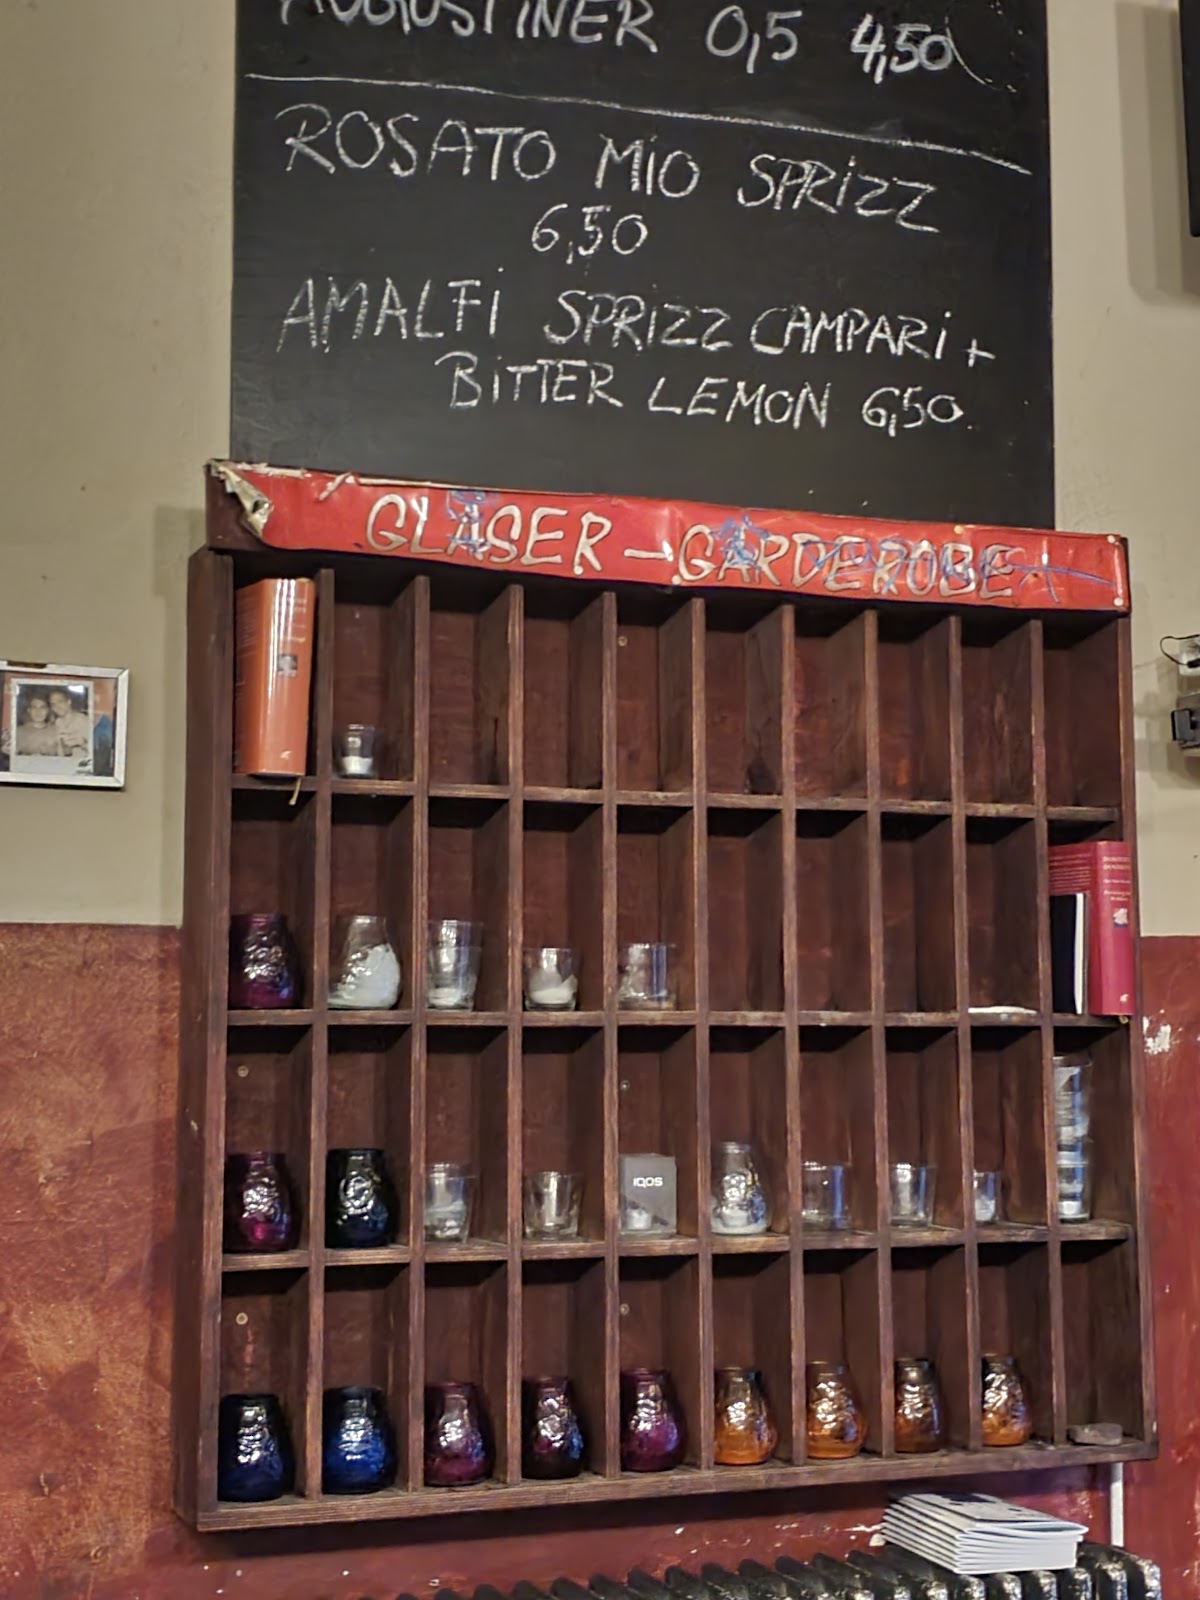 AUGUSTINER 0,5 4,50
ROSATO MIO SPRIZZ
6,50
AMALFI SPRIZZ CAMPARI +
BITTER LEMON 6,50
GLÄSER - GARDEROBE
IQOS